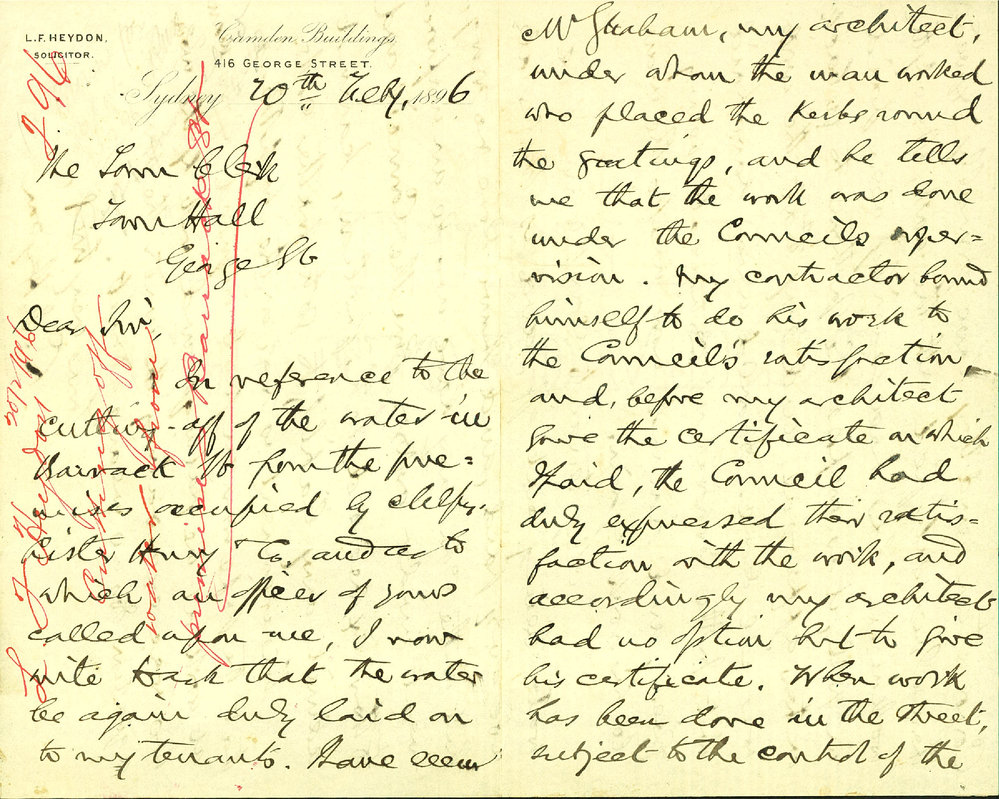 L.F. HEYDON,
SOLICITOR.
Camden Buildings
416 GEORGE STREET.
Sydney 20th Feby. 1896
The Town Clerk
Town Hall
George St
Dear Sir,
In reference to the
cutting-off of the water in
Barrack St from the pre=
mises occupied by Messrs
Lister Henry & Co, and as to
which an officer of yours
called upon me, I now
write to ask that the water
be again duly laid on
to my tenants. I have seen
Mr Graham, my architect,
under whom the man worked
who placed the kerbs round
the gratings, and he tells
me that the work was done
under the Council's super-
vision. My contractor bound
himself to do his work to
the Council's satisfaction,
and, before my architect
gave the certificate on which
I paid, the Council had
duly expressed their satis-
faction with the work, and
accordingly my architect
had no option but to give
his certificate. When work
has been done in the street,
subject to the control of the
296
L F Heydon
Cutting off
water from
premises Barrack St